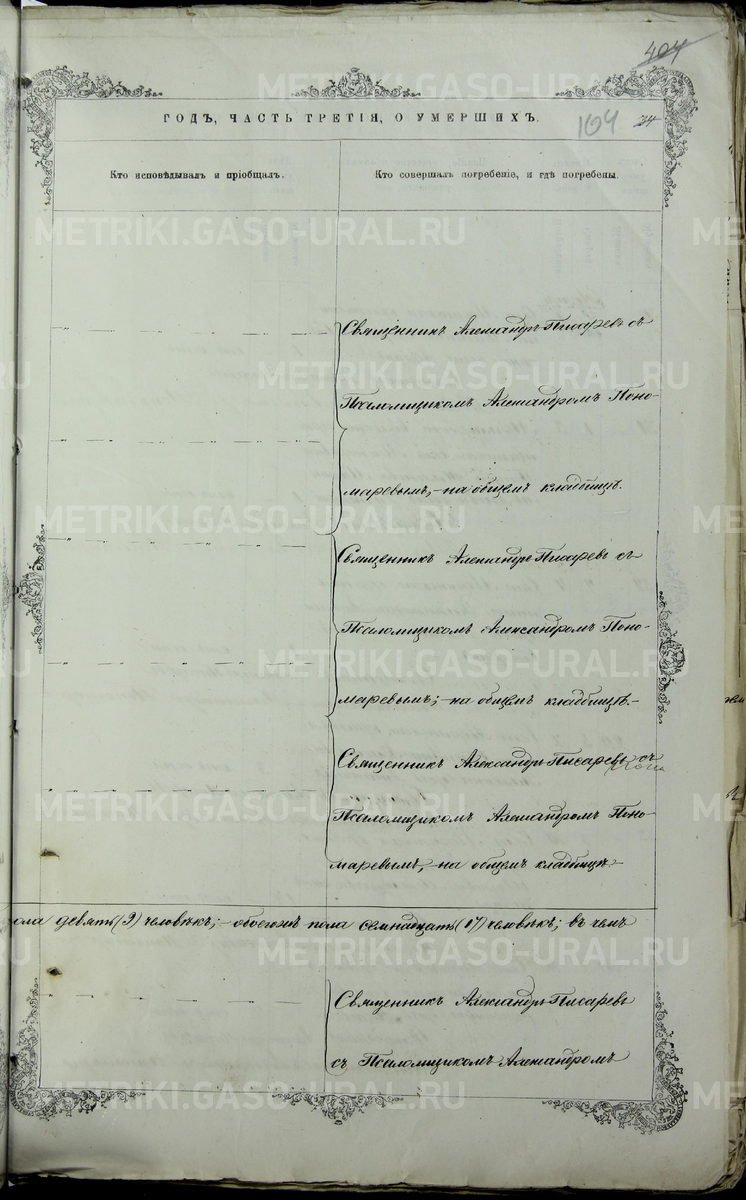 404
ГОДЪ, ЧАСТЬ ТРЕТІЯ, О УМЕРШИХЪ.
104
Кто исповѣдывалъ и пріобщалъ.
Кто совершалъ погребеніе, и гдѣ погребены.
Священникъ Александръ Писаревъ съ
Псаломщикомъ Александромъ Поно-
маревымъ, на общемъ кладбищѣ.
Священникъ Александръ Писаревъ съ
Псаломщикомъ Александромъ Поно-
маревымъ; на общемъ кладбищѣ.
Священникъ Александръ Писаревъ съ
Псаломщикомъ Александромъ Поно-
маревымъ, на общемъ кладбищѣ
пола девять (9) человѣкъ; обоего пола семнадцать (17) человѣкъ; въ чемъ
Священникъ Александръ Писаревъ
съ Псаломщикомъ Александромъ
METRIKI.GASO-URAL.RU